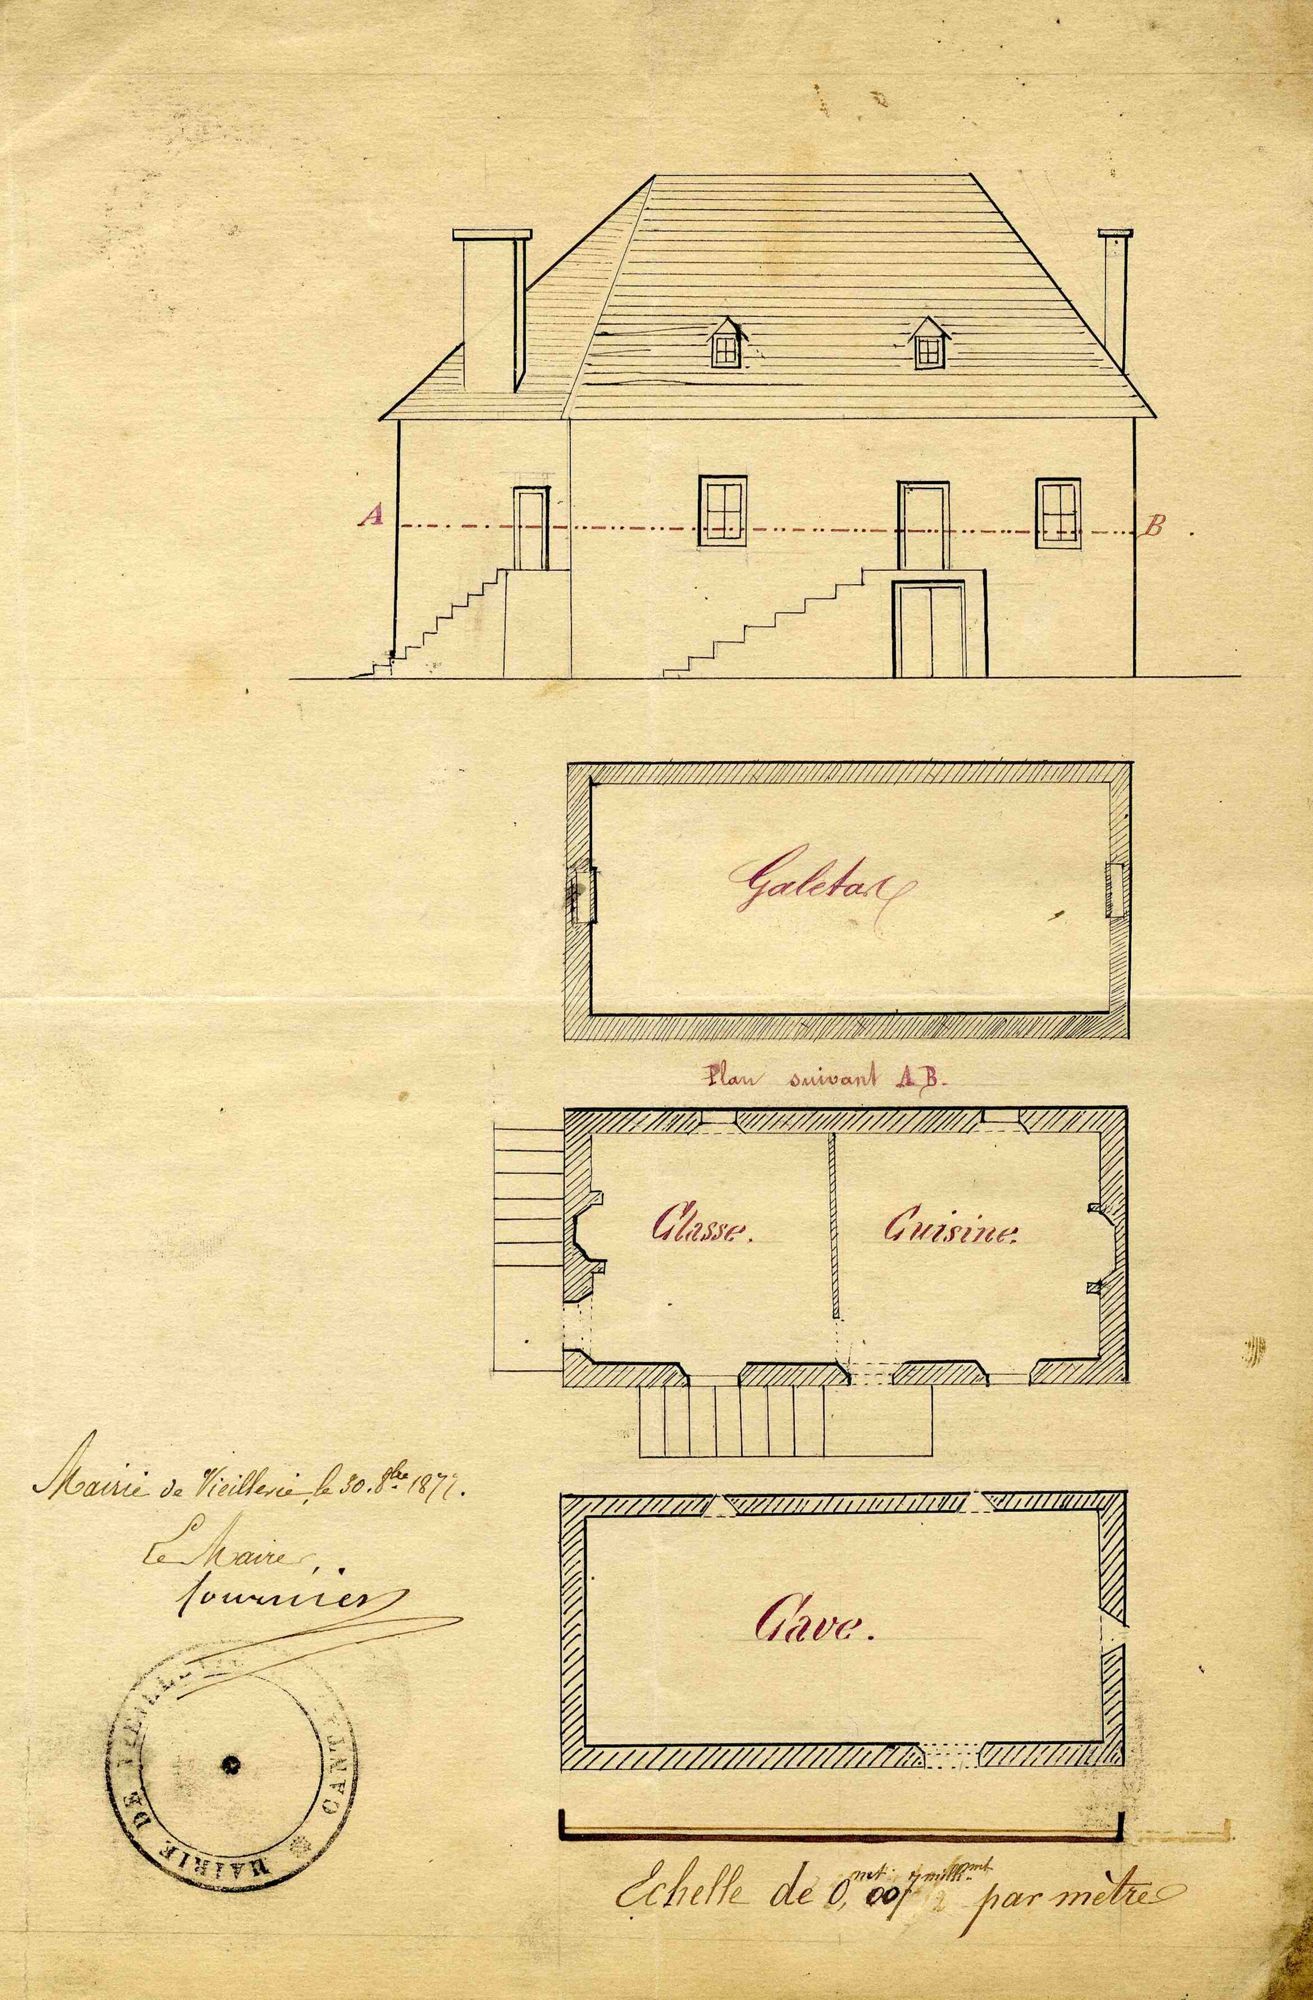 A
B
Galetas
Plan suivant A B.
Classe.
Cuisine.
Mairie de Vieillevie, le 30. 8bre 1877.
Le Maire,
Fournier
Cave.
MAIRIE DE VIEILLEVIE
CANTAL
Echelle de 0,007 par mètre